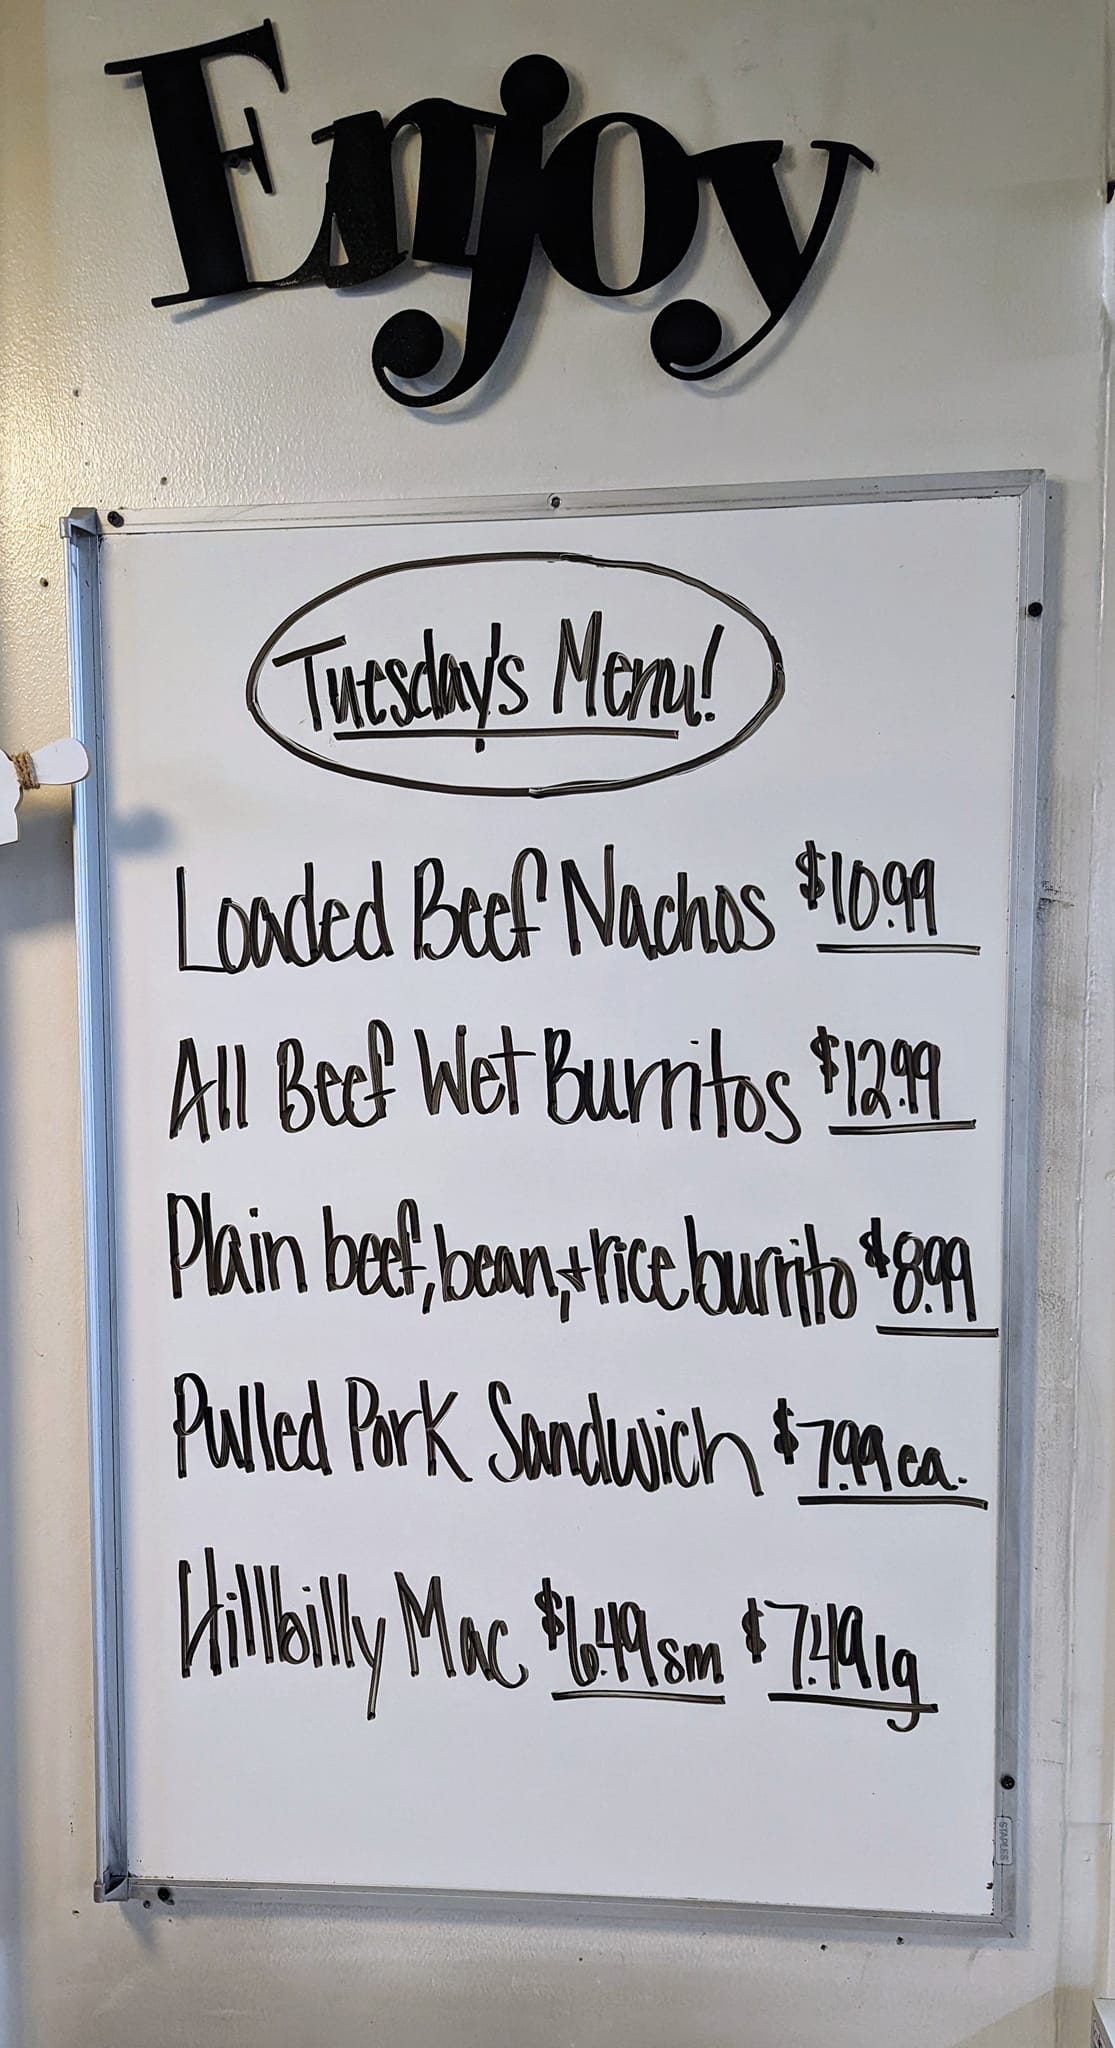 Enjoy
Tuesday's Menu!
Loaded Beef Nachos $10.99
All Beef Wet Burritos $12.99
Plain beef, bean, + rice burrito $8.99
Pulled Pork Sandwich $7.99 ea.
Hillbilly Mac $6.49 sm $7.49 lg
STAPLES